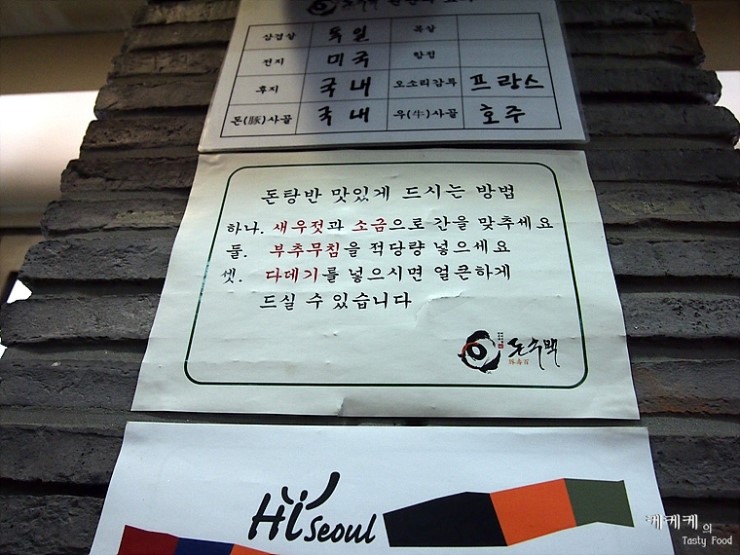 삼겹살 독일 목살
전지 미국 항정
후지 국내 오소리감투 프랑스
돈(豚)사골 국내 우(牛)사골 호주
돈탕반 맛있게 드시는 방법
하나. 새우젓과 소금으로 간을 맞추세요
둘. 부추무침을 적당량 넣으세요
셋. 다데기를 넣으시면 얼큰하게
드실 수 있습니다
돈수백
豚壽百
Hi Seoul
케케케의
Tasty Food